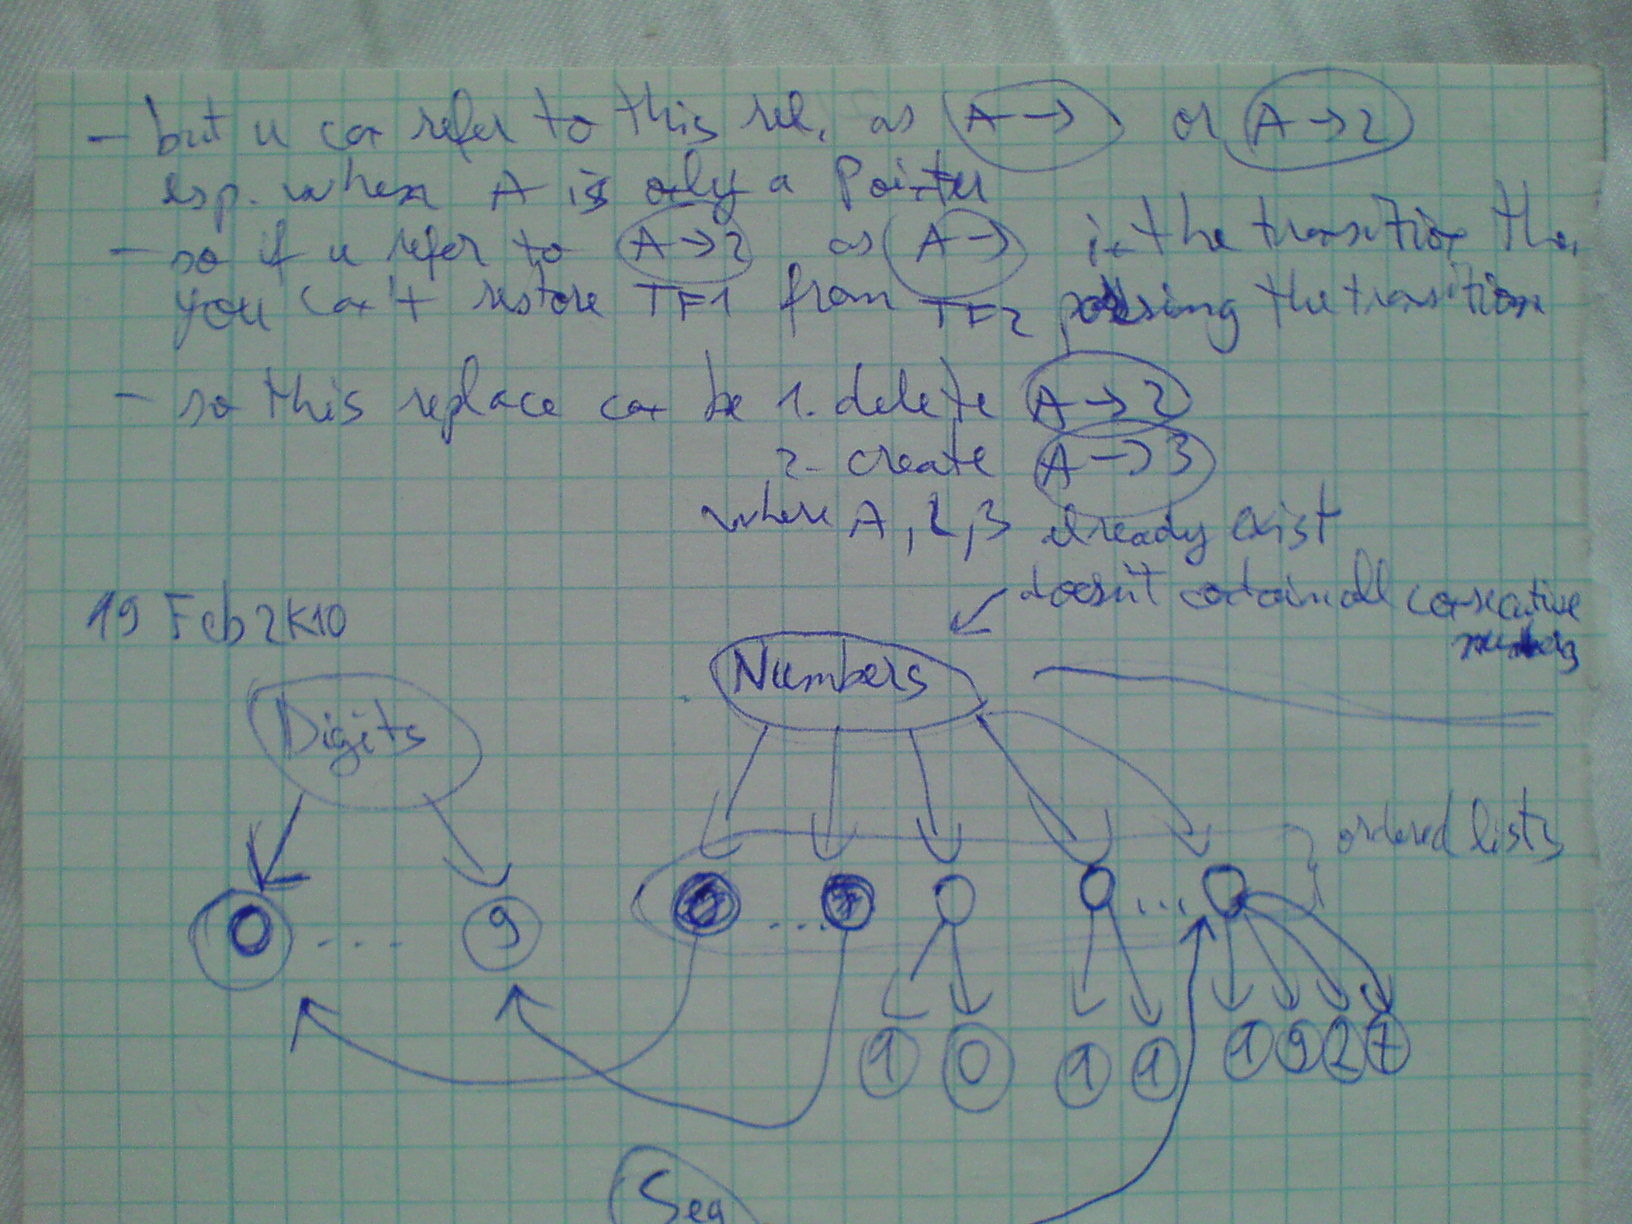 - but u can refer to this rel. as A→ or A→2
esp. when A is only a Pointer
- so if u refer to A→2 as A→ in the transition then
you can't restore TF1 from TF2 parsing the transition
- so this replace can be 1. delete A→2
2. create A→3
where A, 2, 3 already exist
doesn't contain all consecutive
numbers
19 Feb 2K10
Numbers
Digits
ordered lists
0 ... 9
... ...
1 0 1 1 1 9 2 7
Seq